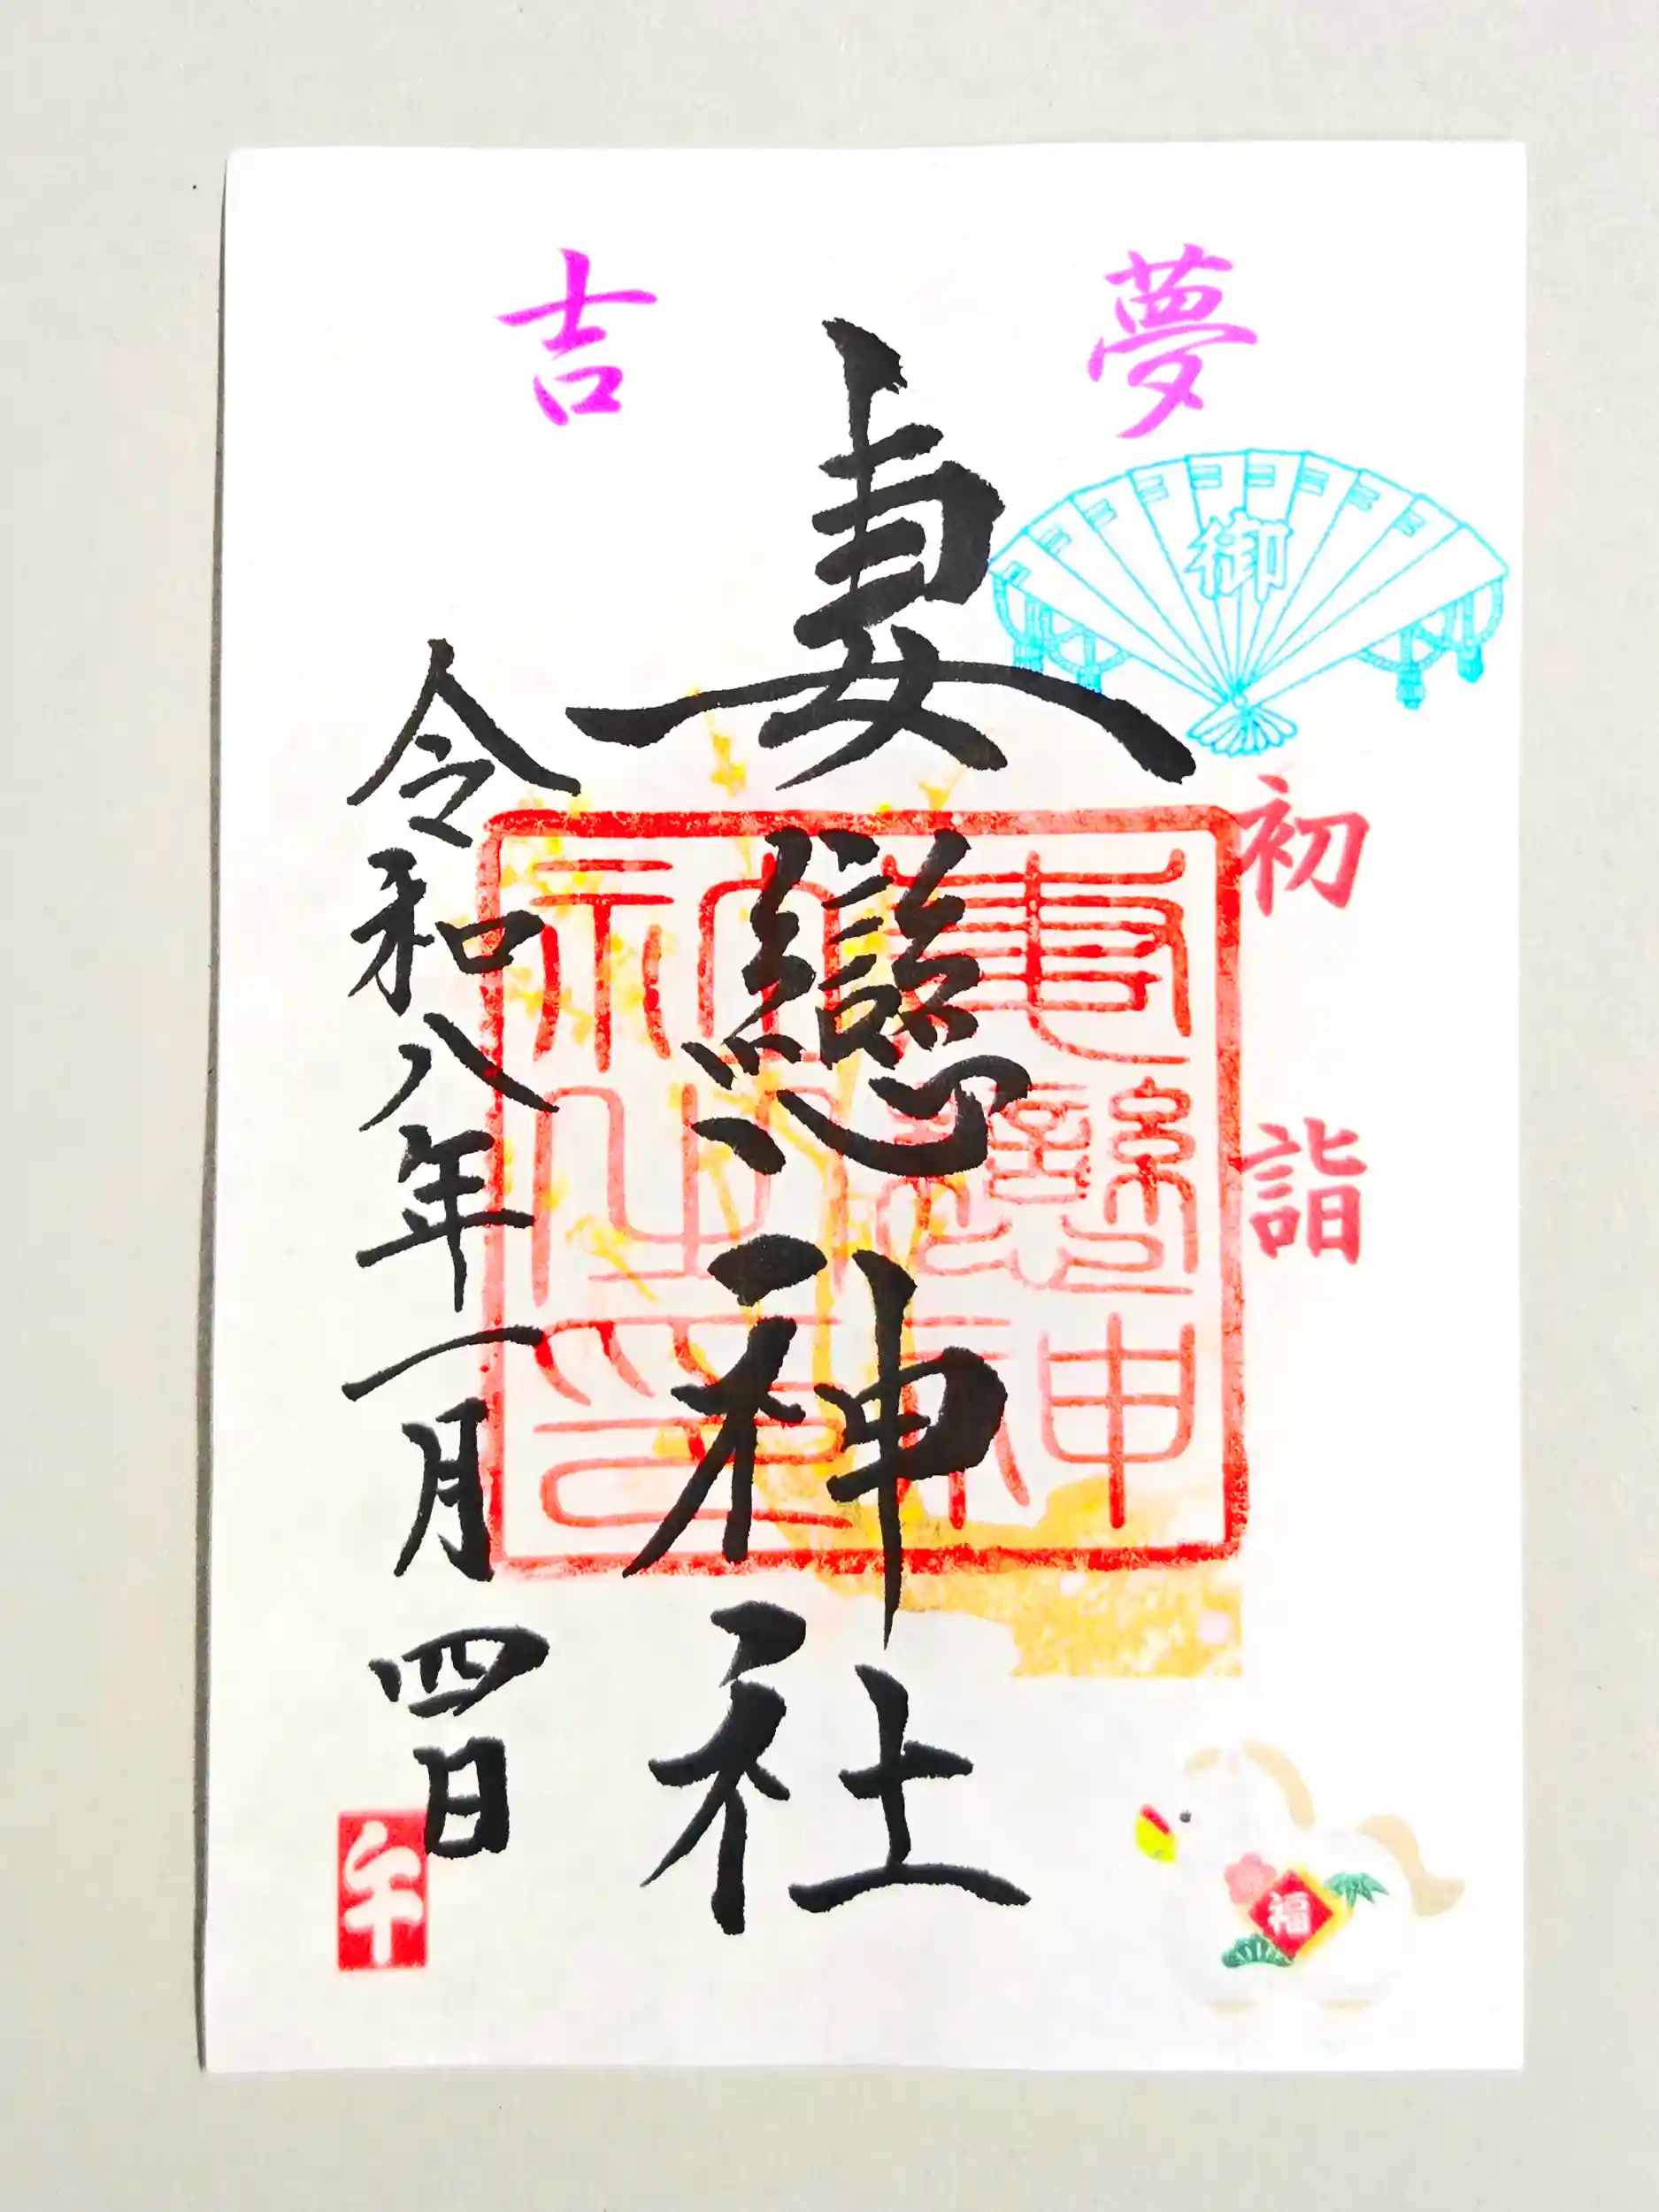 夢
吉
御
初詣
妻戀神社
妻戀神社之印
令和八年一月四日
午
福